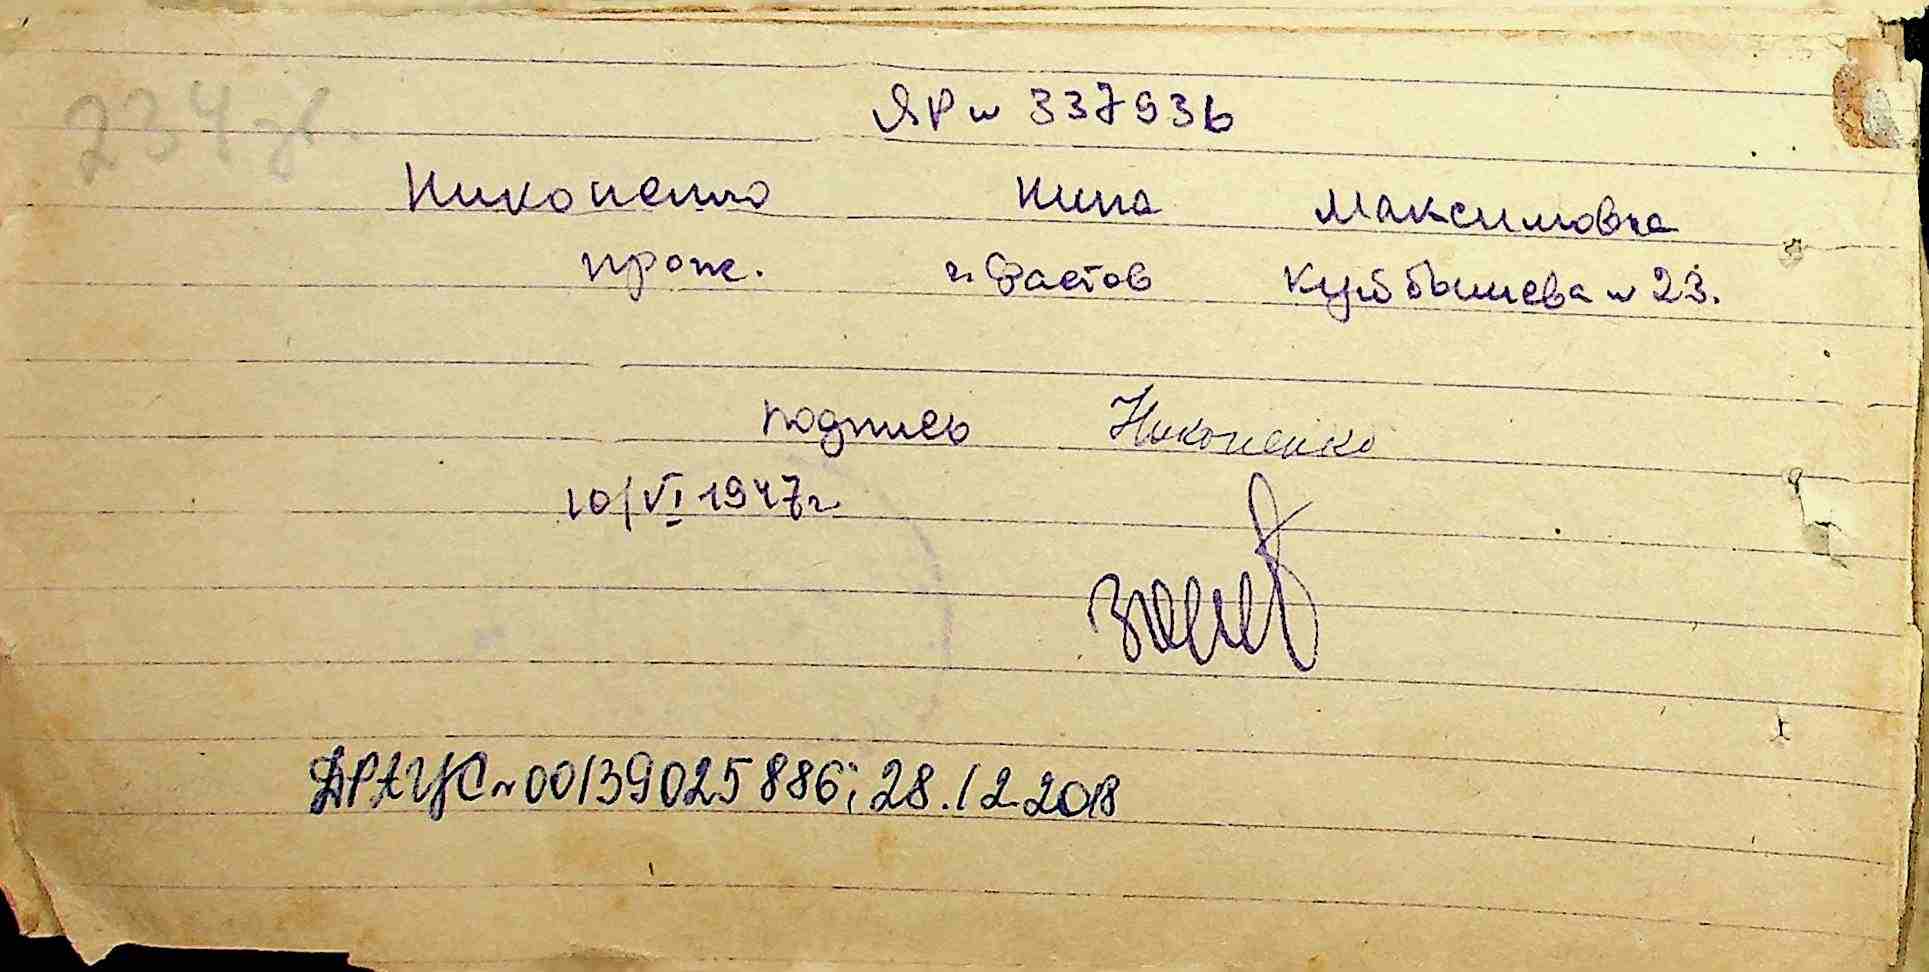 234 зв.
ЯР № 337936
Никоненко Нина Максимовна
прож. г. Фастов Куйбышева № 23.
подпись Никоненко
10/VI 1947г.
ДРАЦС № 00139025886; 28.12.2018